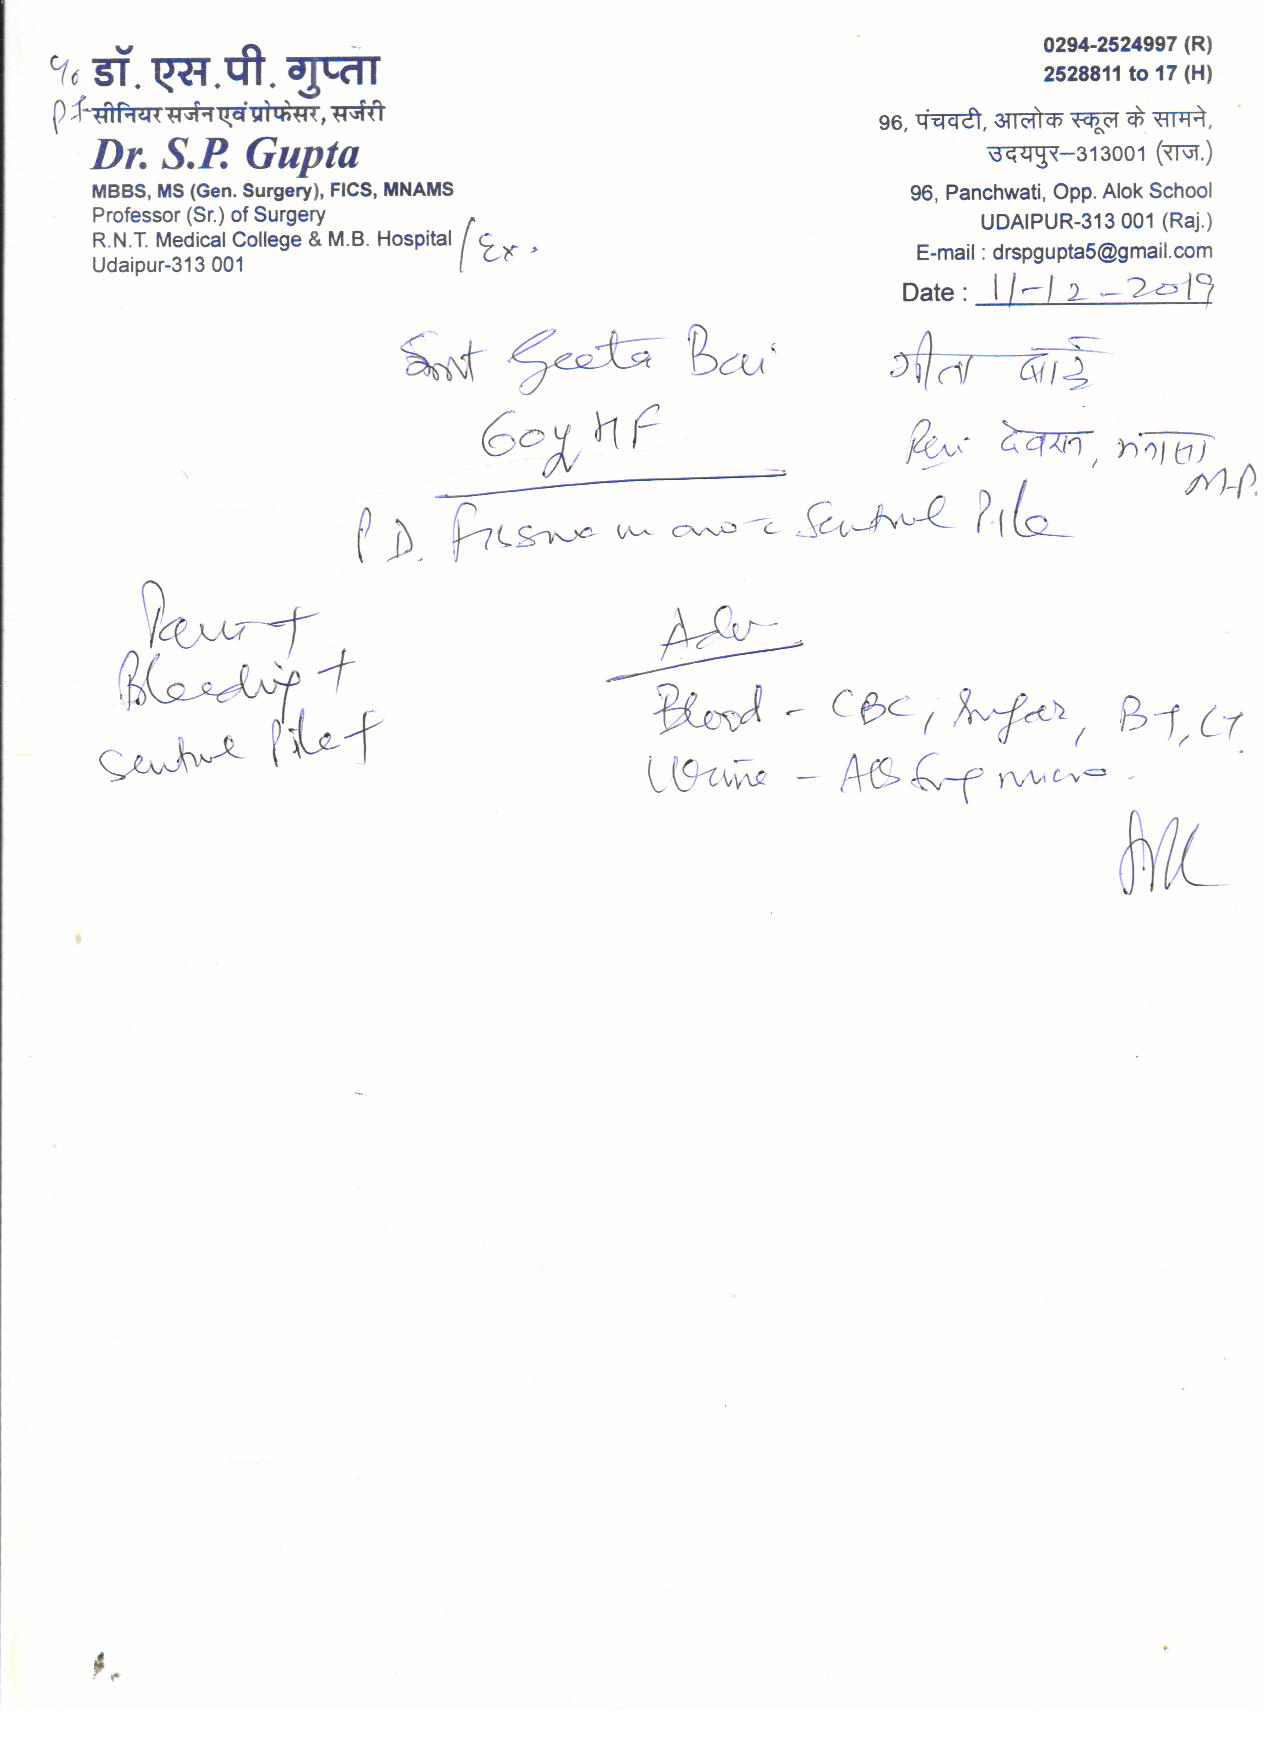 डॉ. एस.पी. गुप्ता
सीनियर सर्जन एवं प्रोफेसर, सर्जरी
Dr. S.P. Gupta
MBBS, MS (Gen. Surgery), FICS, MNAMS
Professor (Sr.) of Surgery
R.N.T. Medical College & M.B. Hospital / Ex.
Udaipur-313 001
0294-2524997 (R)
2528811 to 17 (H)
96, पंचवटी, आलोक स्कूल के सामने,
उदयपुर–313001 (राज.)
96, Panchwati, Opp. Alok School
UDAIPUR-313 001 (Raj.)
E-mail : drspgupta5@gmail.com
Date : 11-12-2019
Smt Geeta Bai गीता बाई
60y HF
M.P.
P.D. Fissure in ano c Sentinel Pile
Pain +
Bleeding +
Sentinel Pile +
Adv
Blood - CBC, Sugar, BT, CT
Urine - micro.